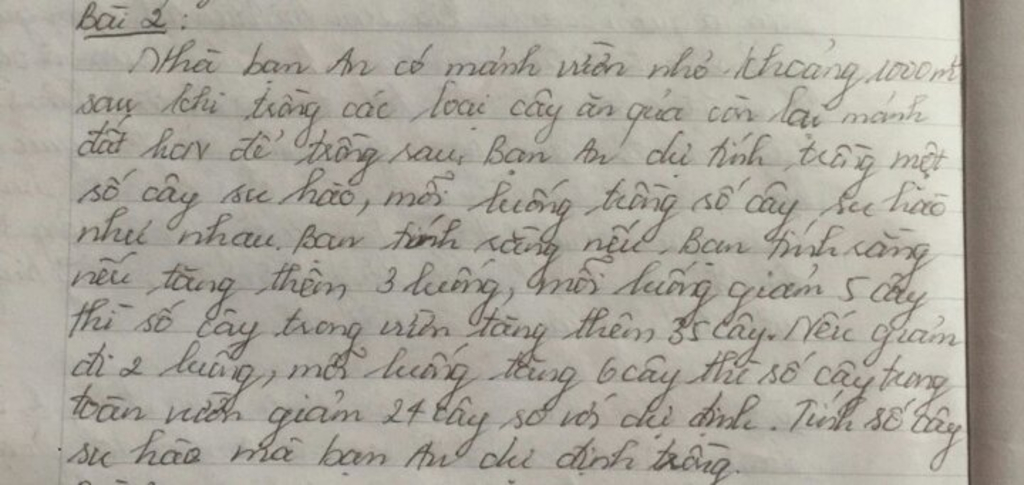 Bài 2:
Nhà bạn An có mảnh vườn nhỏ khoảng 1000m²
sau khi trồng các loại cây ăn quả còn lại mảnh
đất hơn để trồng rau, Bạn An dự tính trồng một
số cây su hào, mỗi luống trồng số cây su hào
như nhau. Bạn tính rằng nếu. Bạn tính rằng
nếu tăng thêm 3 luống, mỗi luống giảm 5 cây
thì số cây trong vườn tăng thêm 35 cây. Nếu giảm
đi 2 luống, mỗi luống tăng 6 cây thì số cây trong
toàn vườn giảm 24 cây so với dự định. Tính số cây
su hào mà bạn An dự định trồng.